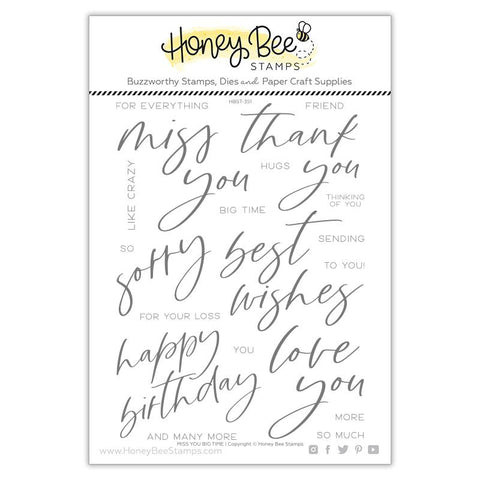 Honey Bee
STAMPS
Buzzworthy Stamps, Dies and Paper Craft Supplies
FOR EVERYTHING
HBST-351
FRIEND
miss
you
thank
you
LIKE CRAZY
HUGS
THINKING
OF YOU
BIG TIME
SO
sorry
best
wishes
SENDING
TO YOU!
FOR YOUR LOSS
happy
birthday
YOU
love
you
MORE
AND MANY MORE
SO MUCH
MISS YOU BIG TIME | Copyright © Honey Bee Stamps
www.HoneyBeeStamps.com